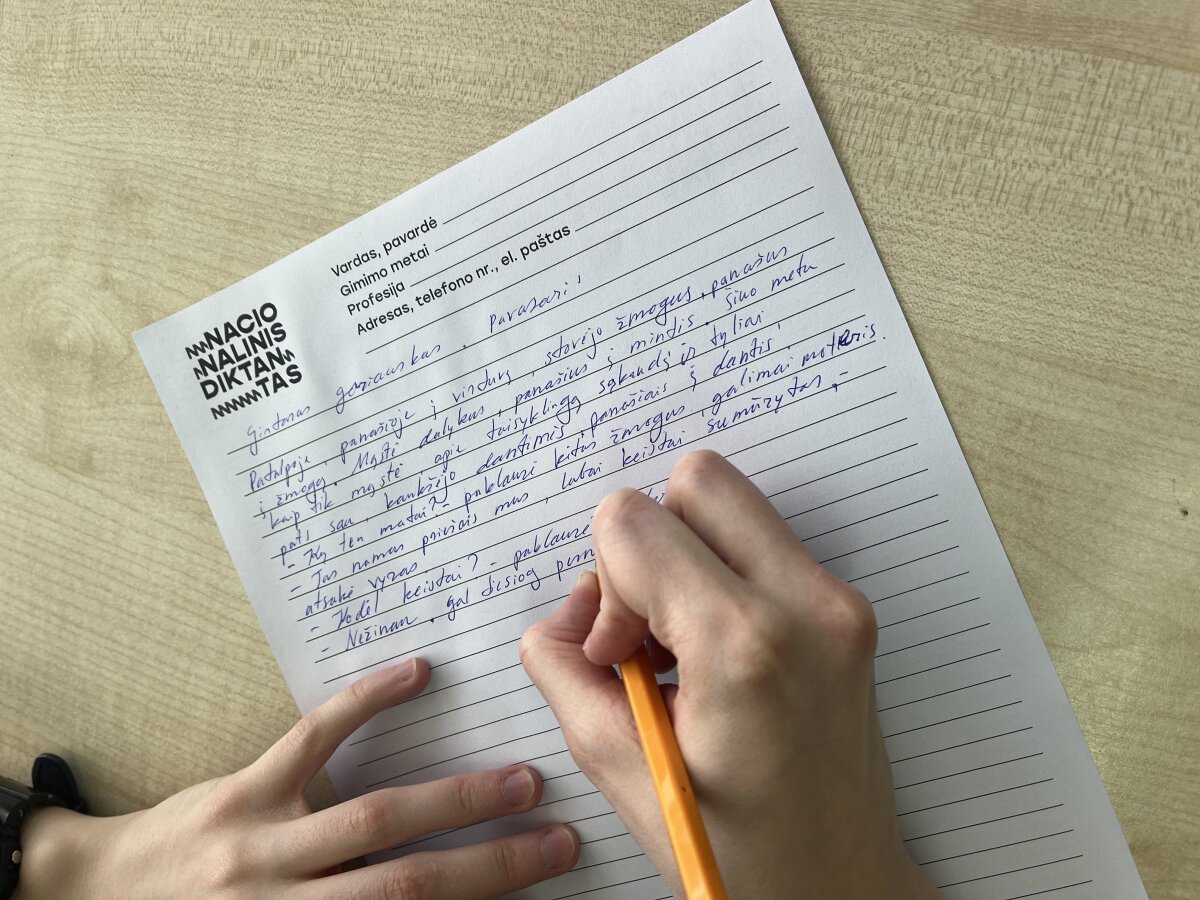 NACIO
NALINIS
DIKTAN
TAS
Vardas, pavardė
Gimimo metai
Profesija
Adresas, telefono nr., el. paštas
Gintaras . Pavasari,
Patalpoje, panašioje į virtuvę, stovėjo žmogus, panašus
į žmogų. Mąstė dalykus, panašius į mintis. Šiuo metu
kaip tik mąstė apie taisyklingą sąkandį ir tyliai,
pats sau, kaukšėjo dantimis, panašiais į dantis.
- Ką ten matai? - paklausė kitas žmogus, galimai moteris.
- Tas namas priešais mus, labai keistai sumūrytas, -
atsakė vyras
- Kodėl keistai? - paklausė
- Nežinau, gal tiesiog